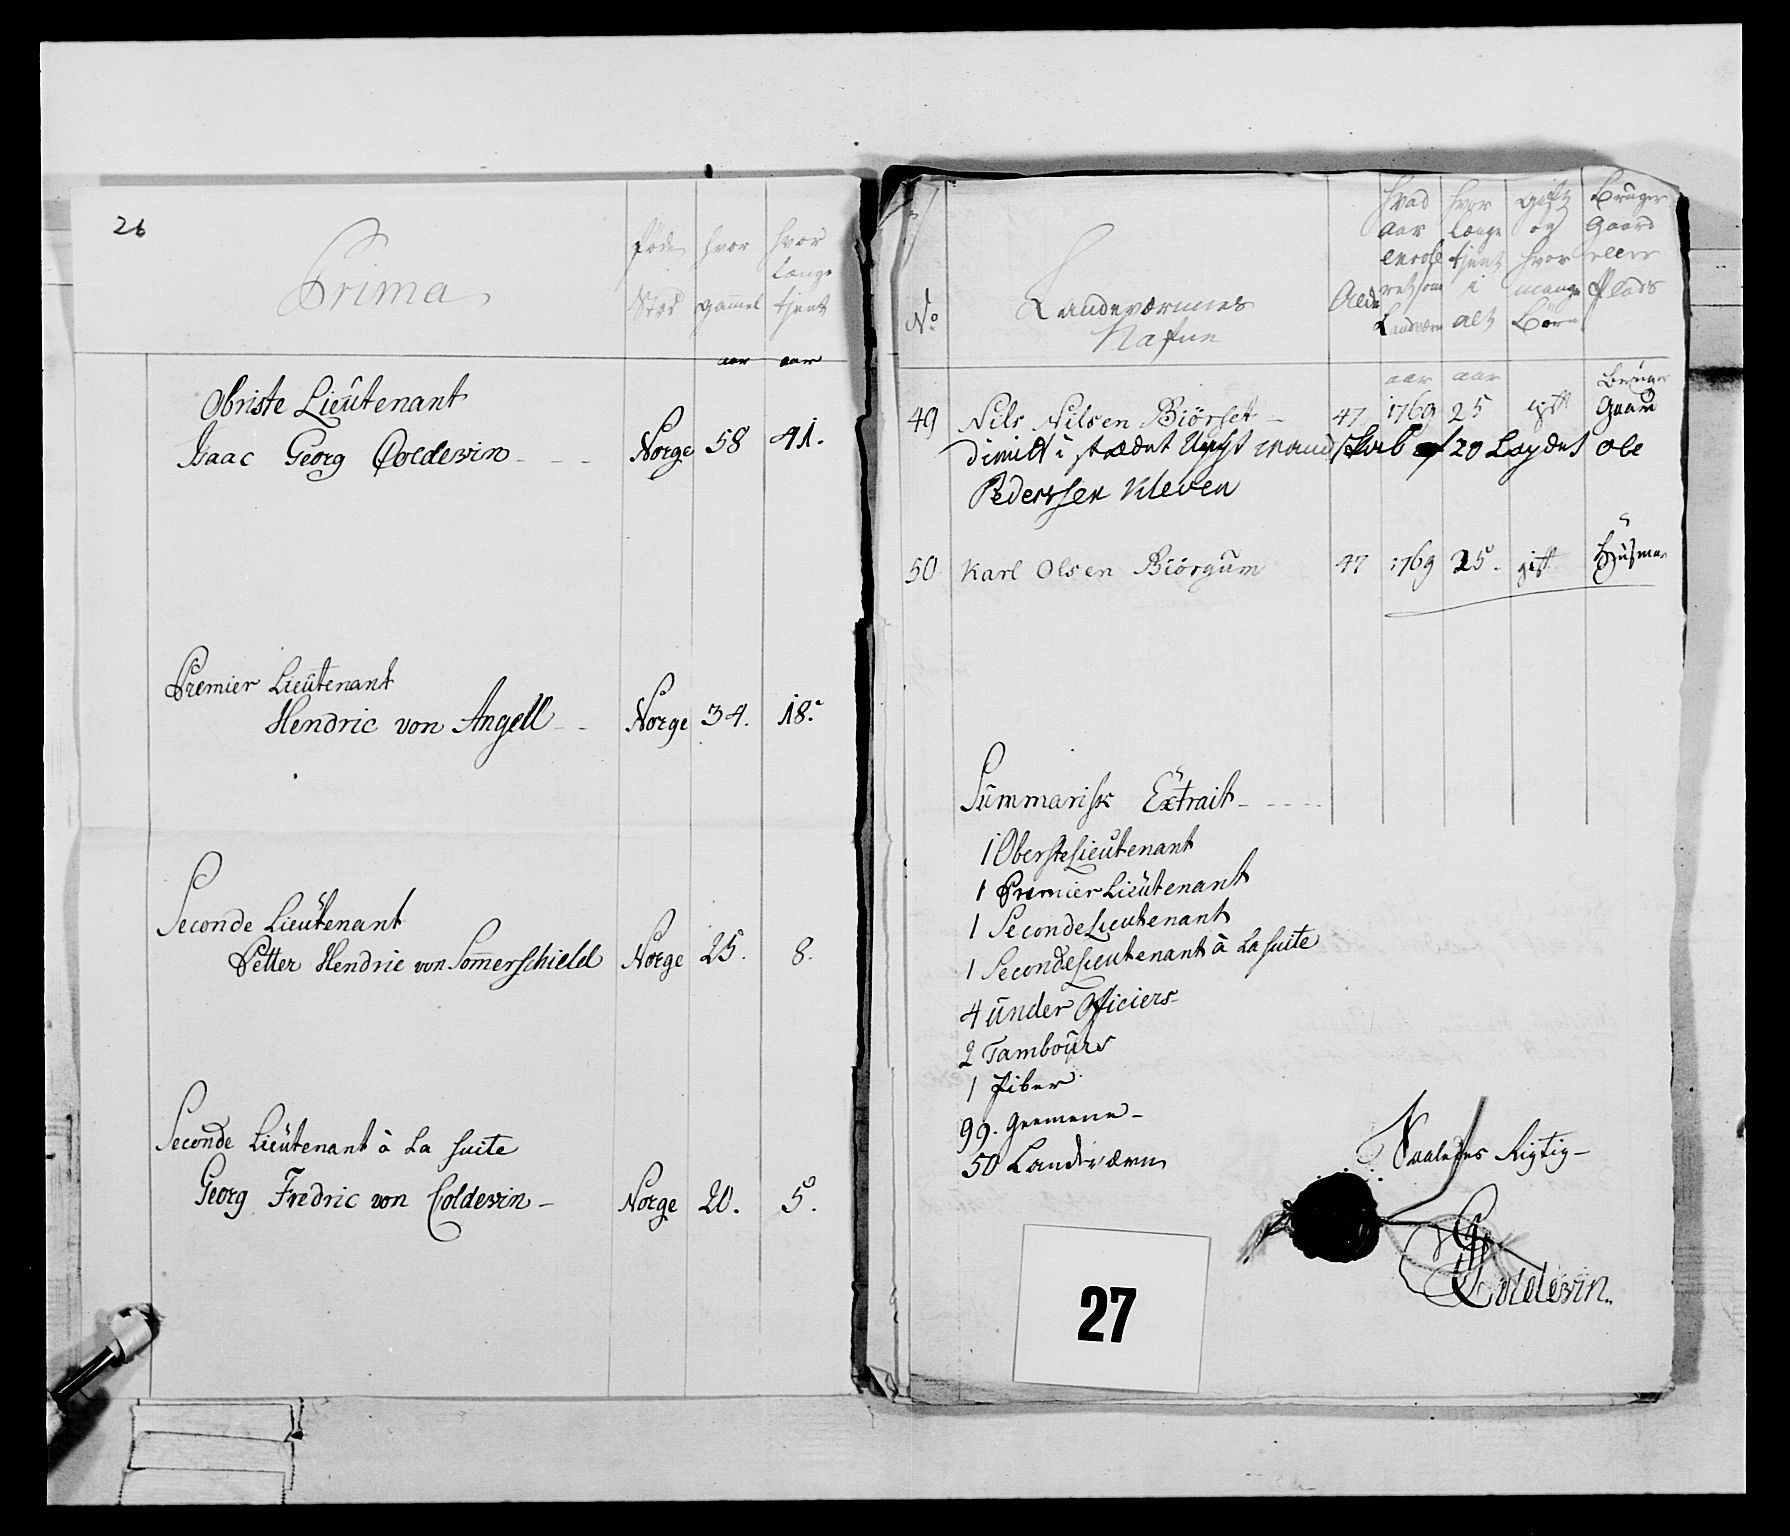 26
Prima
føde Sted
hvor gamel
hvor længe tjent
aar aar
Obriste Lieutenant
Isaac Georg Coldevin - - - Norge 58 41.
Premier Lieutenant
Hendric von Angell - - Norge 34. 18.
Seconde Lieutenant
Petter Hendric von Somerschield Norge 25. 8.
Seconde Lieutenant à La suite
Georg Fredric von Coldevin - Norge 20. 5.
No
Landeværnnes Nafne
Hvad aar enrolleret som Landværn
hvor længe tjent i alt
gift og hvor mange Børn
Bruger Gaard eller Plads
aar aar Bruger
49 Nils Nilsen Biörset - 47 1769 25 gift Gaard
dimitt i stædet mandskab af 20 Lægdet Ole
Pederssen Kleven
50 Karl Olsen Biörgum 47 1769 25. gift Husman
Summarisk Extrait - - - -
1 ObersteLieutenant
1 Premier Lieutenant
1 SecondeLieutenant
1 SecondeLieutenant à La suite
4 under Officiers
2 Tambours
1 Piber
99. Gemene -
50 Landværn
Saaledes Rigtig -
G Coldevin.
27